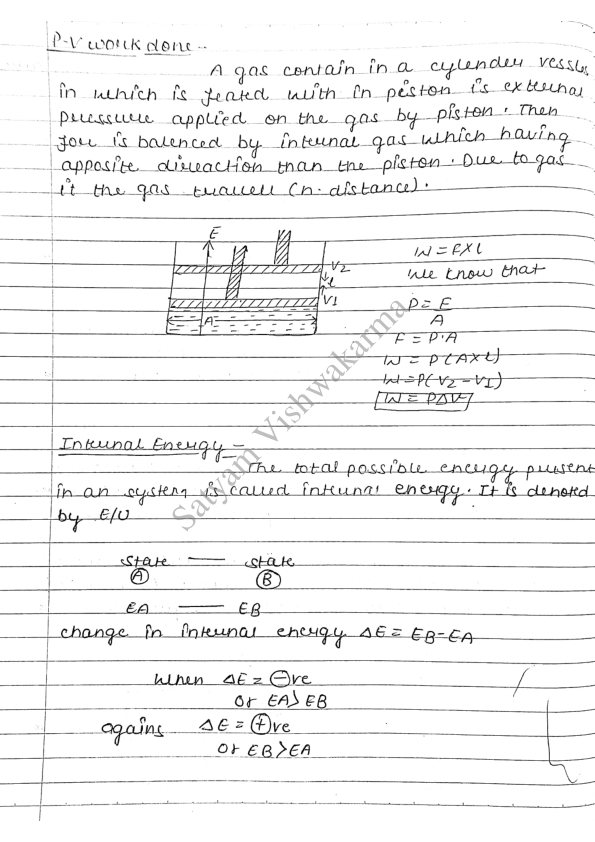 P-V work done..
A gas contain in a cylender vessles
in which is feated with in piston is external
pressure applied on the gas by piston. Then
four is balenced by internal gas which having
apposite direaction than the piston. Due to gas
it the gas travell (n. distance).
E
V2
l
V1
A
W = F X l
we know that
P = F
A
F = P.A
W = P(A X l)
W = P(V2 - V1)
W = PΔV
Internal Energy -
The total possible energy present
in an system is called internal energy. It is denoted
by E/U
state — state
A B
EA — EB
change in internal energy ΔE = EB-EA
When ΔE = -ve
or EA> EB
agains ΔE = +ve
or EB>EA
Satyam Vishwakarma